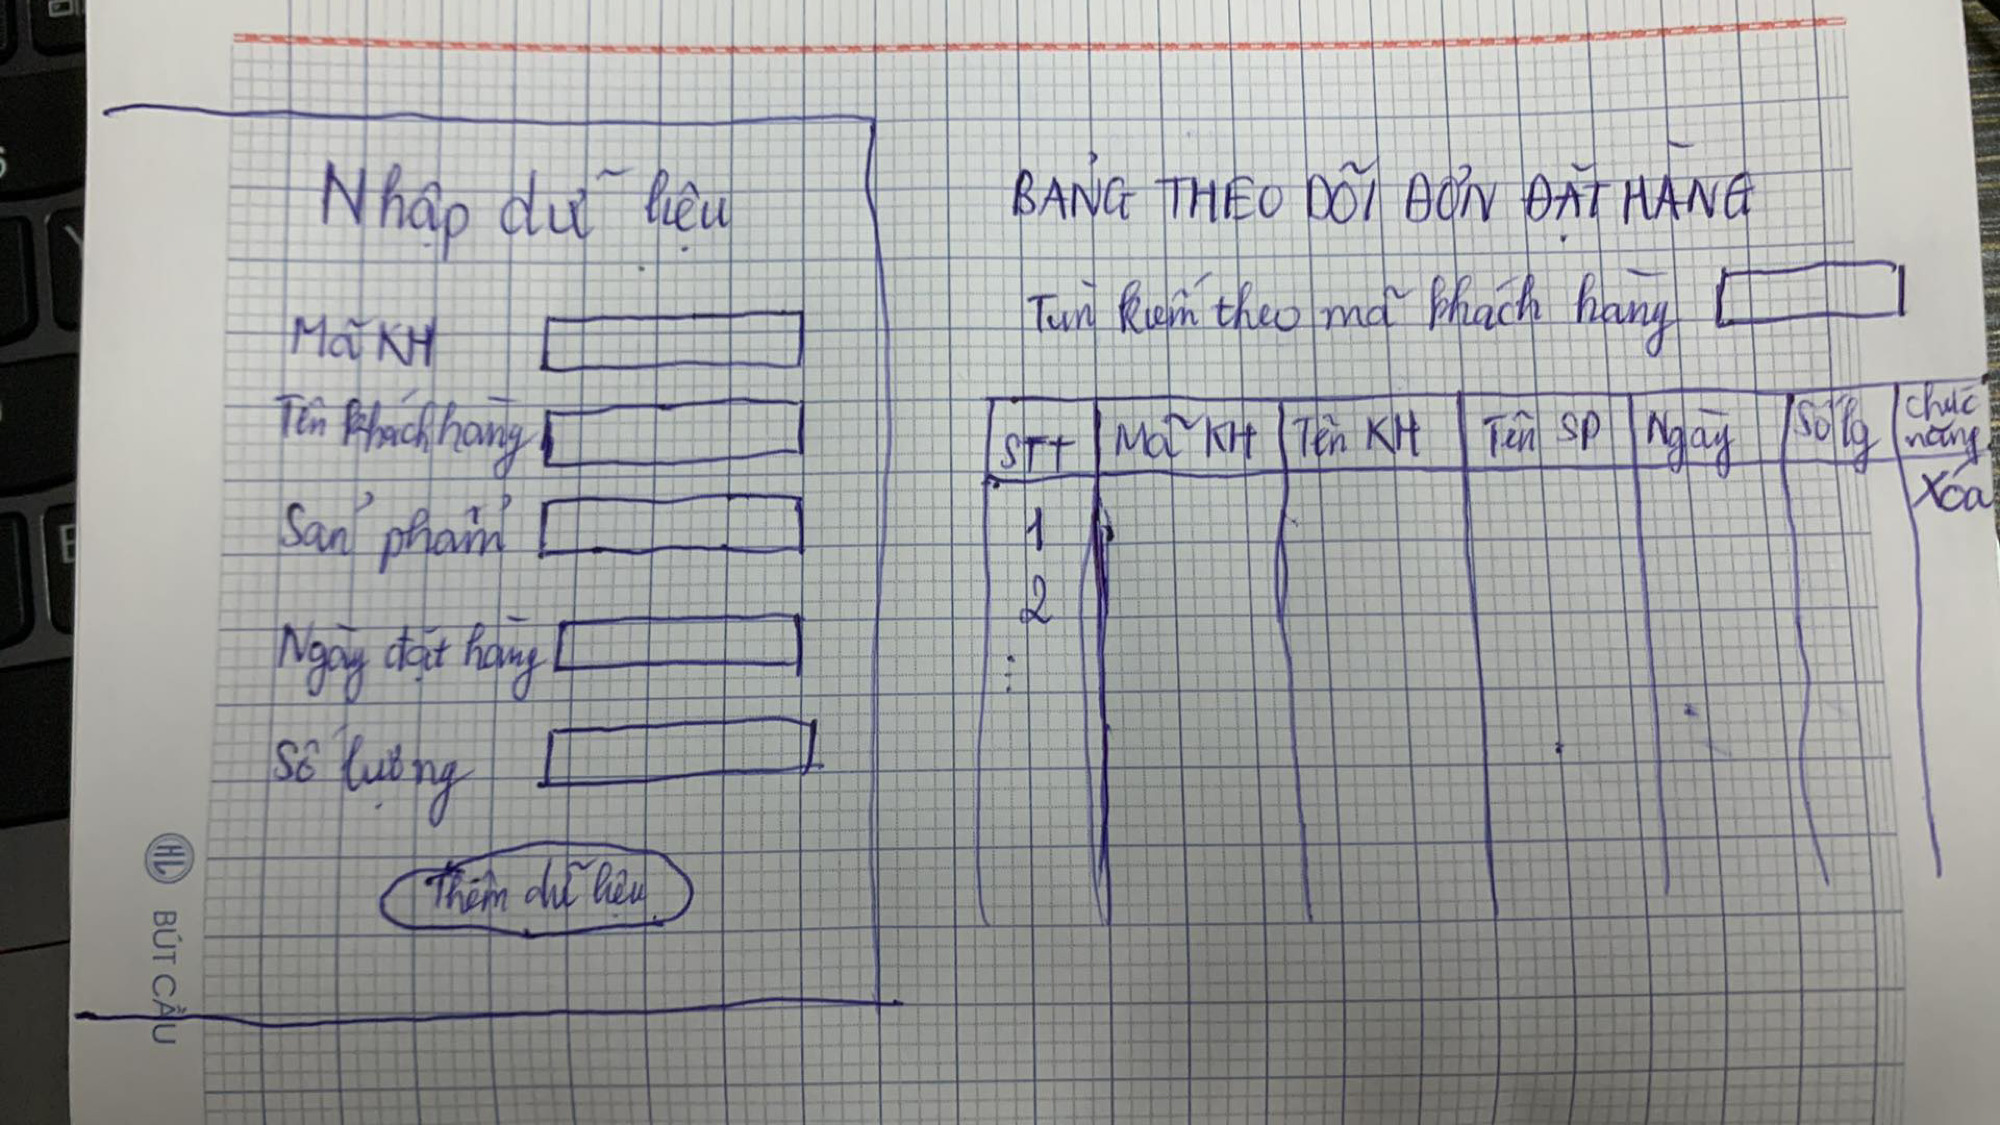 Nhập dữ liệu
Mã KH
Tên khách hàng
Sản phẩm
Ngày đặt hàng
Số lượng
Thêm dữ liệu
BẢNG THEO DÕI ĐƠN ĐẶT HÀNG
Tìm kiếm theo mã khách hàng
STT Mã KH Tên KH Tên SP Ngày Số lg chức năng
1 Xóa
2
⋮
HL BÚT CẦU